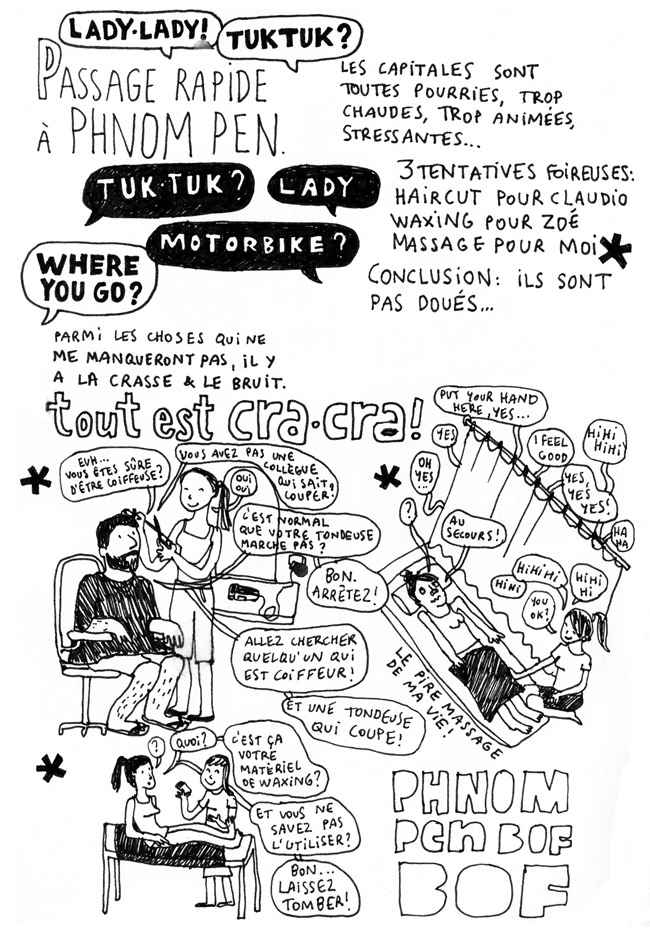 LADY·LADY!
TUKTUK?
PASSAGE RAPIDE
À PHNOM PEN.
LES CAPITALES SONT
TOUTES POURRIES, TROP
CHAUDES, TROP ANIMÉES,
STRESSANTES...
TUK·TUK?
LADY
MOTORBIKE?
WHERE
YOU GO?
3 TENTATIVES FOIREUSES:
HAIRCUT POUR CLAUDIO
WAXING POUR ZOÉ
MASSAGE POUR MOI *
CONCLUSION: ILS SONT
PAS DOUÉS...
PARMI LES CHOSES QUI NE
ME MANQUERONT PAS, IL Y
A LA CRASSE & LE BRUIT.
tout est cra·cra!
*
EUH...
VOUS ÊTES SÛRE
D'ÊTRE COIFFEUSE?
VOUS AVEZ PAS UNE
COLLÈGUE
QUI SAIT
COUPER!
OUI
OUI
C'EST NORMAL
QUE VOTRE TONDEUSE
MARCHE PAS?
BON.
ARRÊTEZ!
ALLEZ CHERCHER
QUELQU'UN QUI
EST COIFFEUR!
ET UNE TONDEUSE
QUI COUPE!
*
PUT YOUR HAND
HERE, YES...
YES
I FEEL
GOOD
HIHI
HIHI
OH
YES
...
YES,
YES
YES!
HA
HA
?
AU
SECOURS!
HIHI
HIHIHI
HIHI
HI
YOU
OK?
LE PIRE MASSAGE
DE MA VIE!
*
?
QUOI?
C'EST ÇA
VOTRE
MATÉRIEL
DE WAXING?
ET VOUS NE
SAVEZ PAS
L'UTILISER?
BON...
LAISSEZ
TOMBER!
PHNOM
Pen BOF
BOF